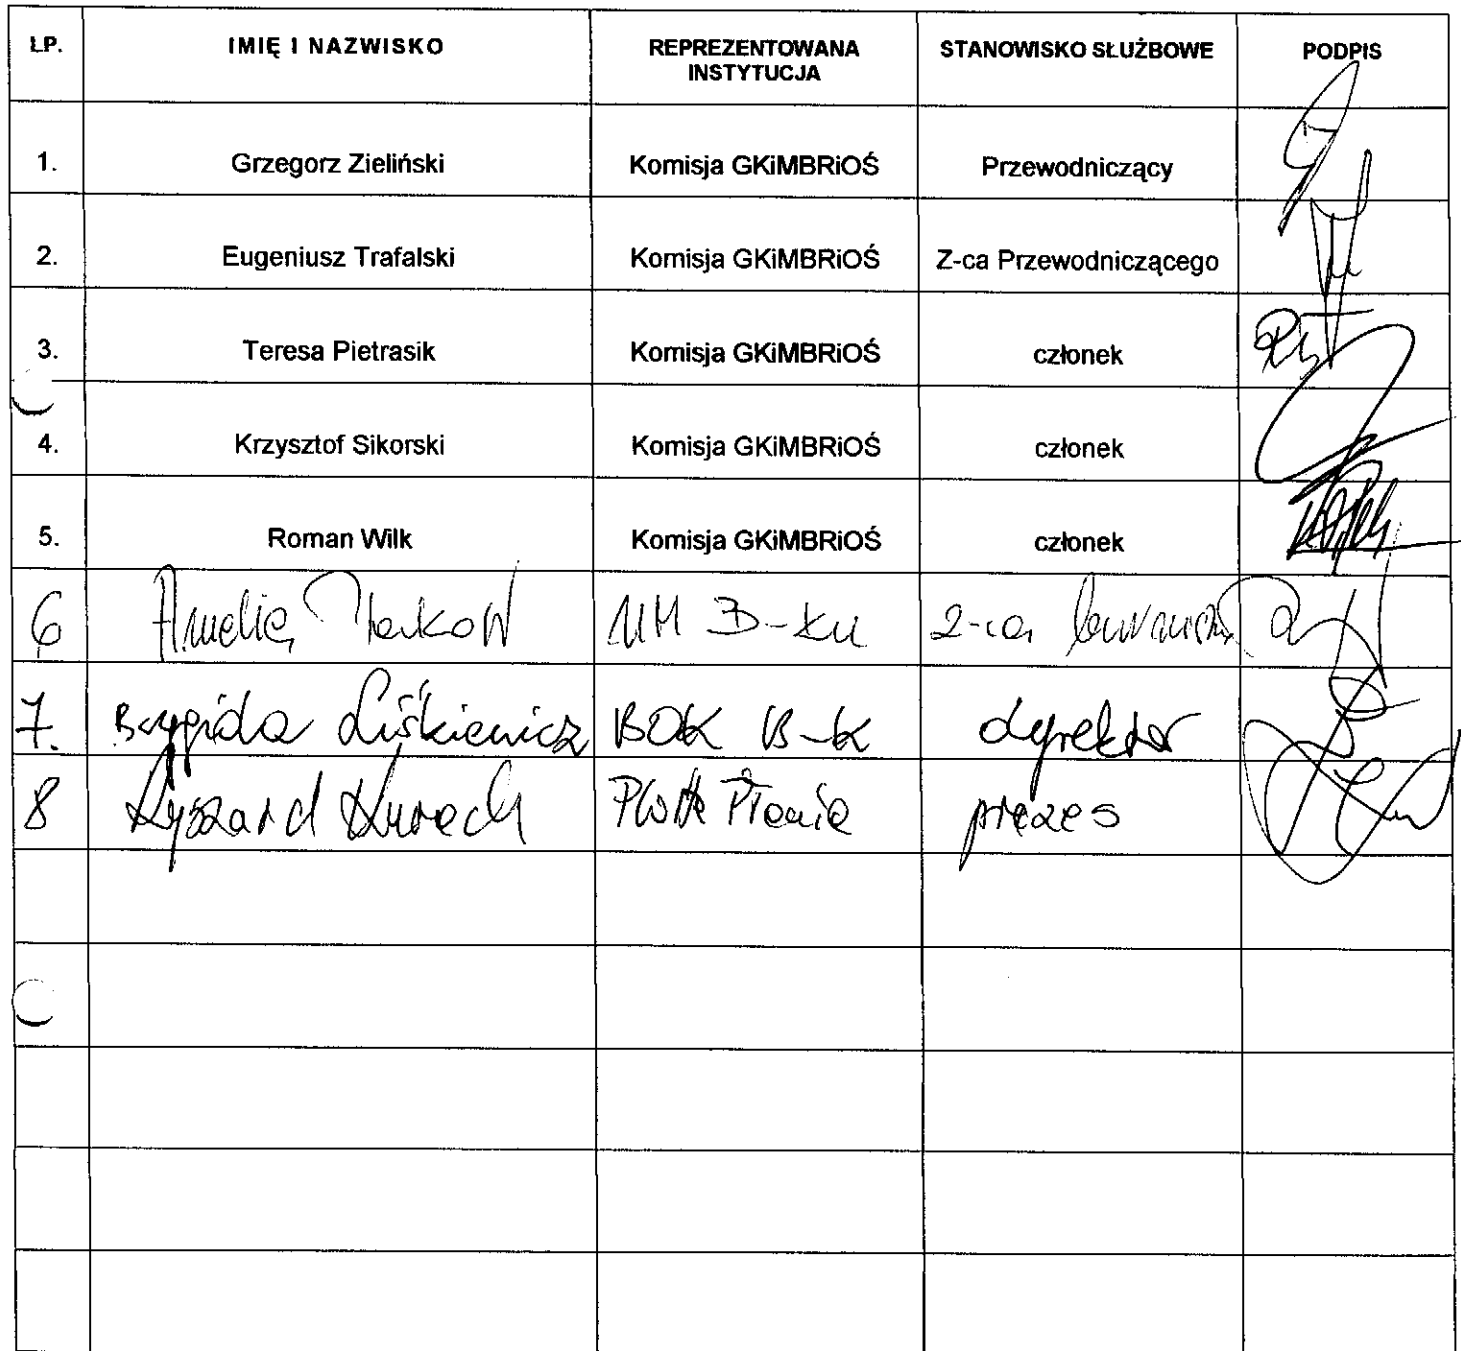 LP. IMIĘ I NAZWISKO REPREZENTOWANA INSTYTUCJA STANOWISKO SŁUŻBOWE PODPIS
1. Grzegorz Zieliński Komisja GKiMBRiOŚ Przewodniczący
2. Eugeniusz Trafalski Komisja GKiMBRiOŚ Z-ca Przewodniczącego
3. Teresa Pietrasik Komisja GKiMBRiOŚ członek
4. Krzysztof Sikorski Komisja GKiMBRiOŚ członek
5. Roman Wilk Komisja GKiMBRiOŚ członek
6 Amelia UM B-ku Z-ca
7. Brygida Liśkiewicz BOK B-k dyrektor
8 Ryszard prezes